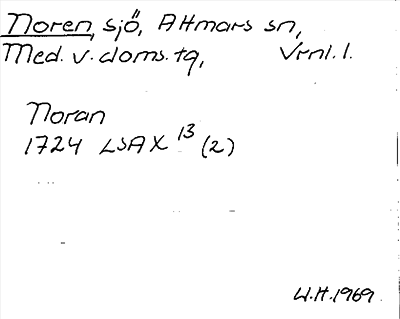 Noren, sjö, Attmars sn,
Med. v. doms. tg, Vrnl. l.
Noran
1724 LSA X 13 (2)
W.H. 1969